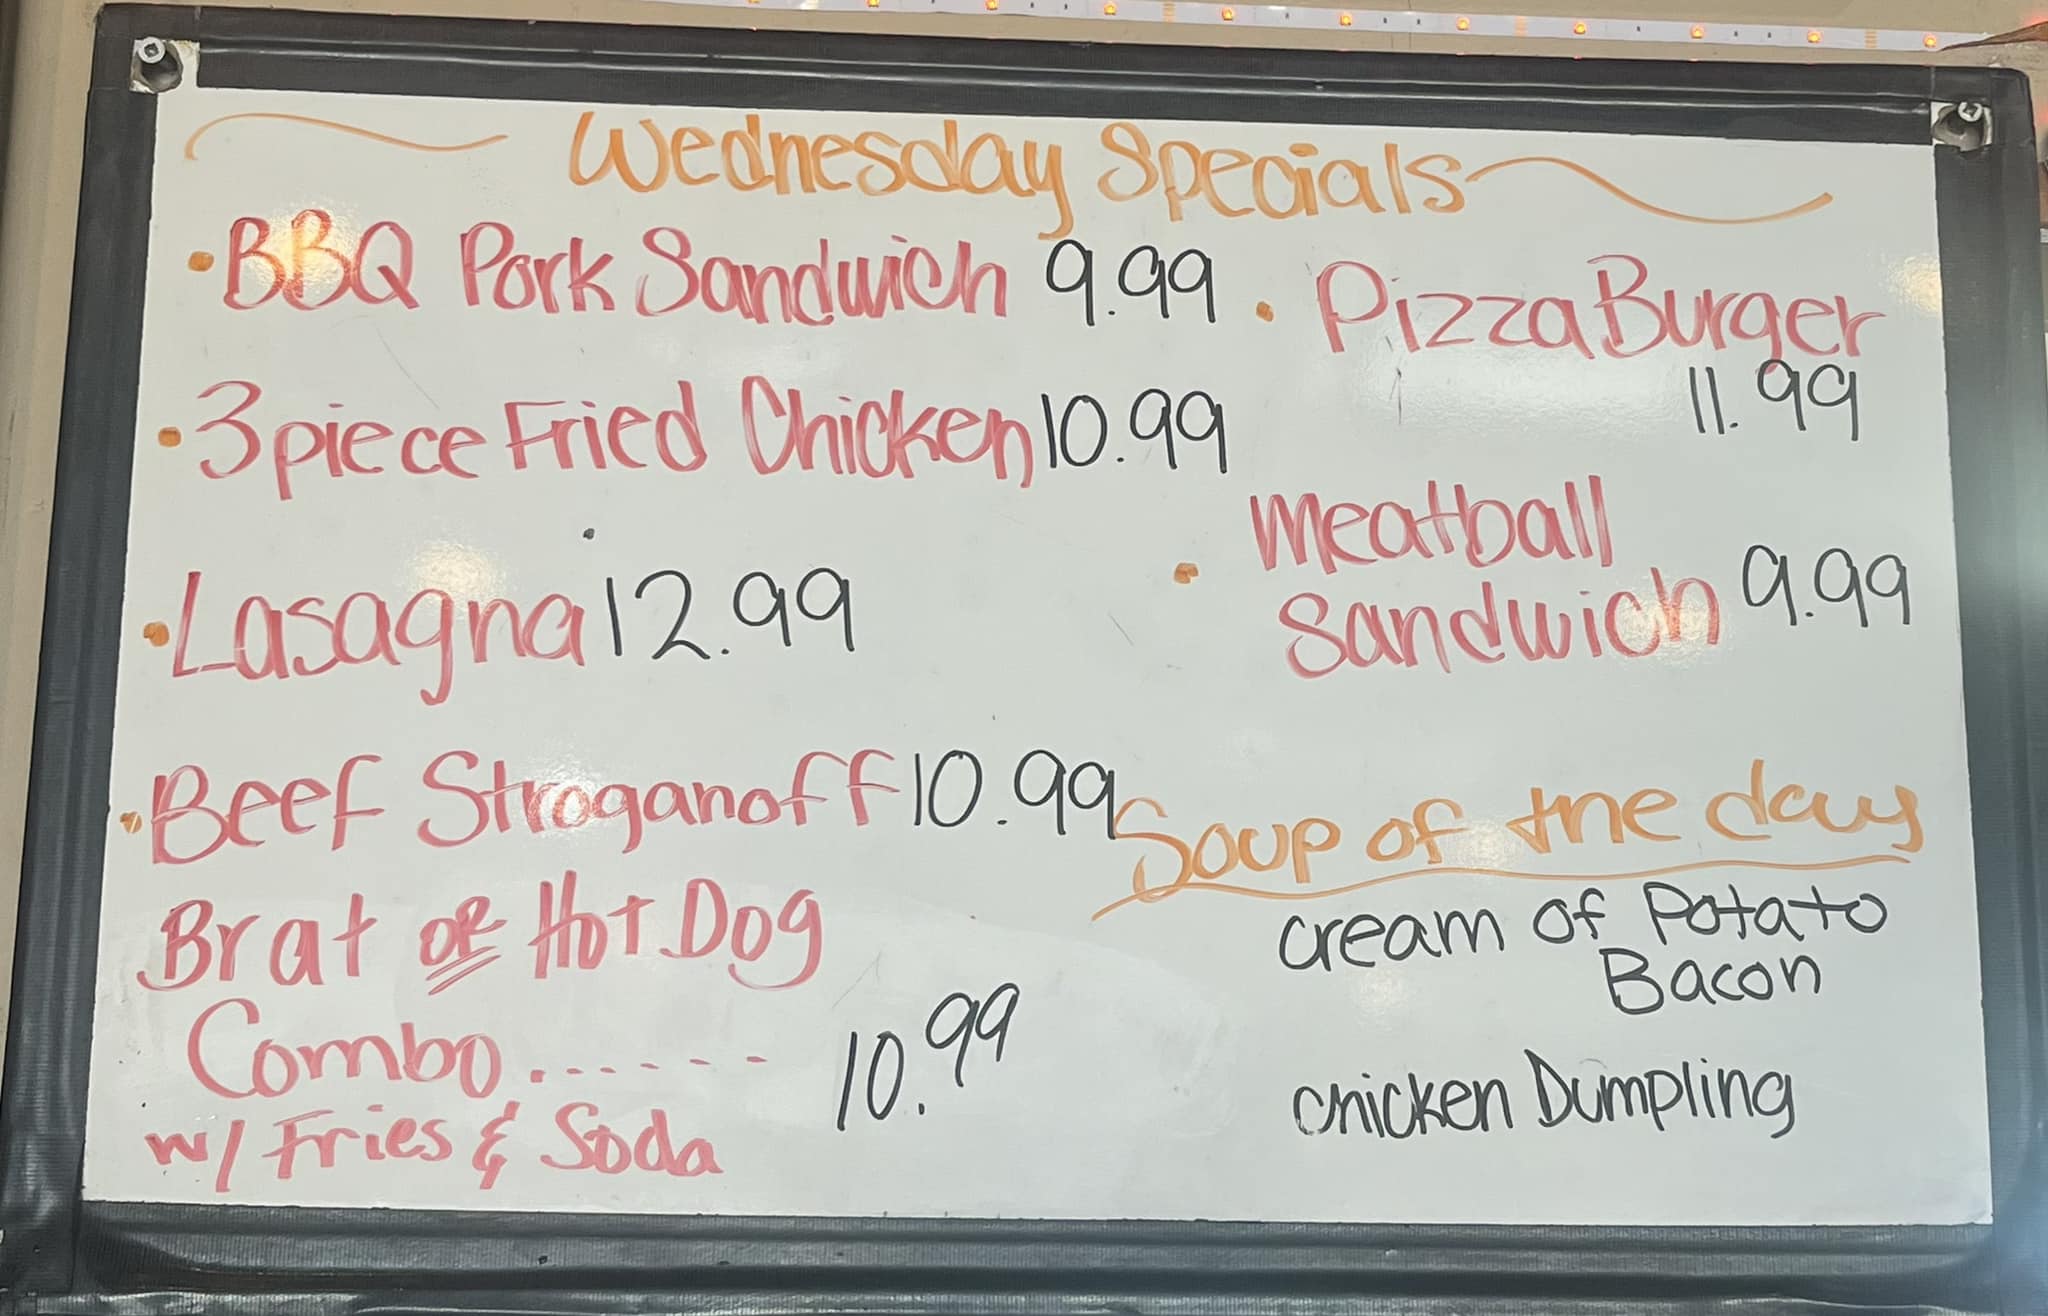 Wednesday Specials
• BBQ Pork Sandwich 9.99
• 3 piece Fried Chicken 10.99
• Lasagna 12.99
• Beef Stroganoff 10.99
Brat or Hot Dog
Combo....... 10.99
w/ Fries & Soda
• Pizza Burger
11.99
• Meatball
Sandwich 9.99
Soup of the day
cream of Potato
Bacon
chicken Dumpling